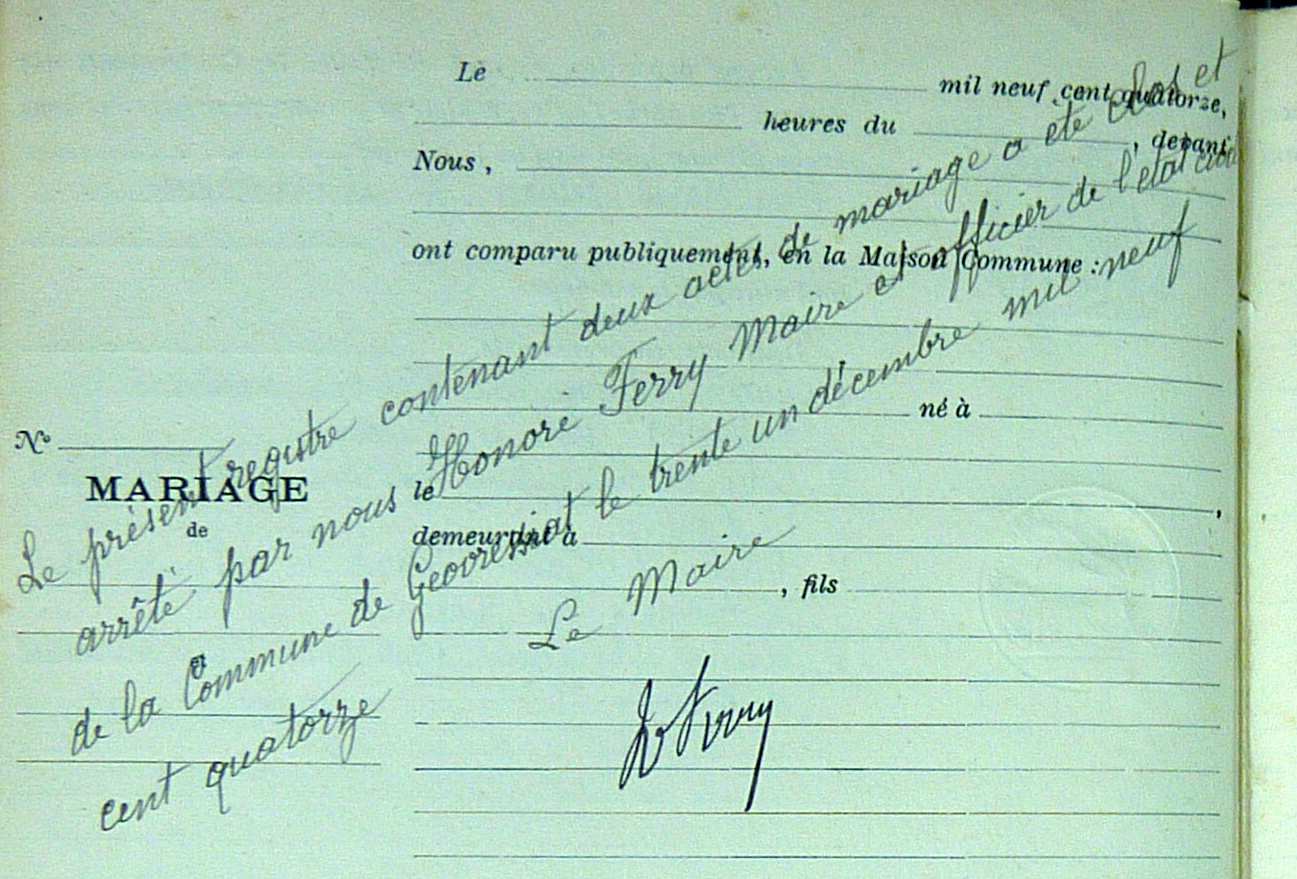 Le mil neuf cent quatorze,
heures du , devant
Nous ,
ont comparu publiquement, en la Maison Commune :
né à
le ,
demeurant à
, fils
N°
MARIAGE
de
et
Le présent registre contenant deux actes de mariage a été clos et
arrêté par nous Honoré Ferry Maire et officier de l'état civil
de la Commune de Géovressiat le trente un décembre mil neuf
cent quatorze
Le Maire
Ferry